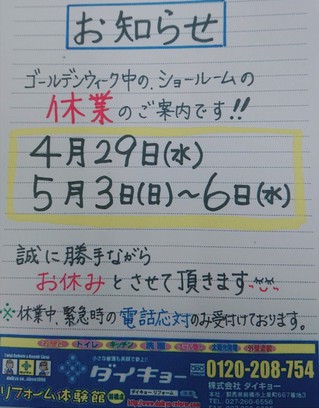 お知らせ
ゴールデンウィーク中の、ショールームの
休業のご案内です!!
4月29日(水)
5月3日(日)～6日(水)
誠に勝手ながら
お休みとさせて頂きます
※休業中、緊急時の電話応対のみ受付けております。
トイレ キッチン 洗面
ダイキョー
0120-208-754
株式会社 ダイキョー
リフォーム体験館
TEL. 027-260-6556